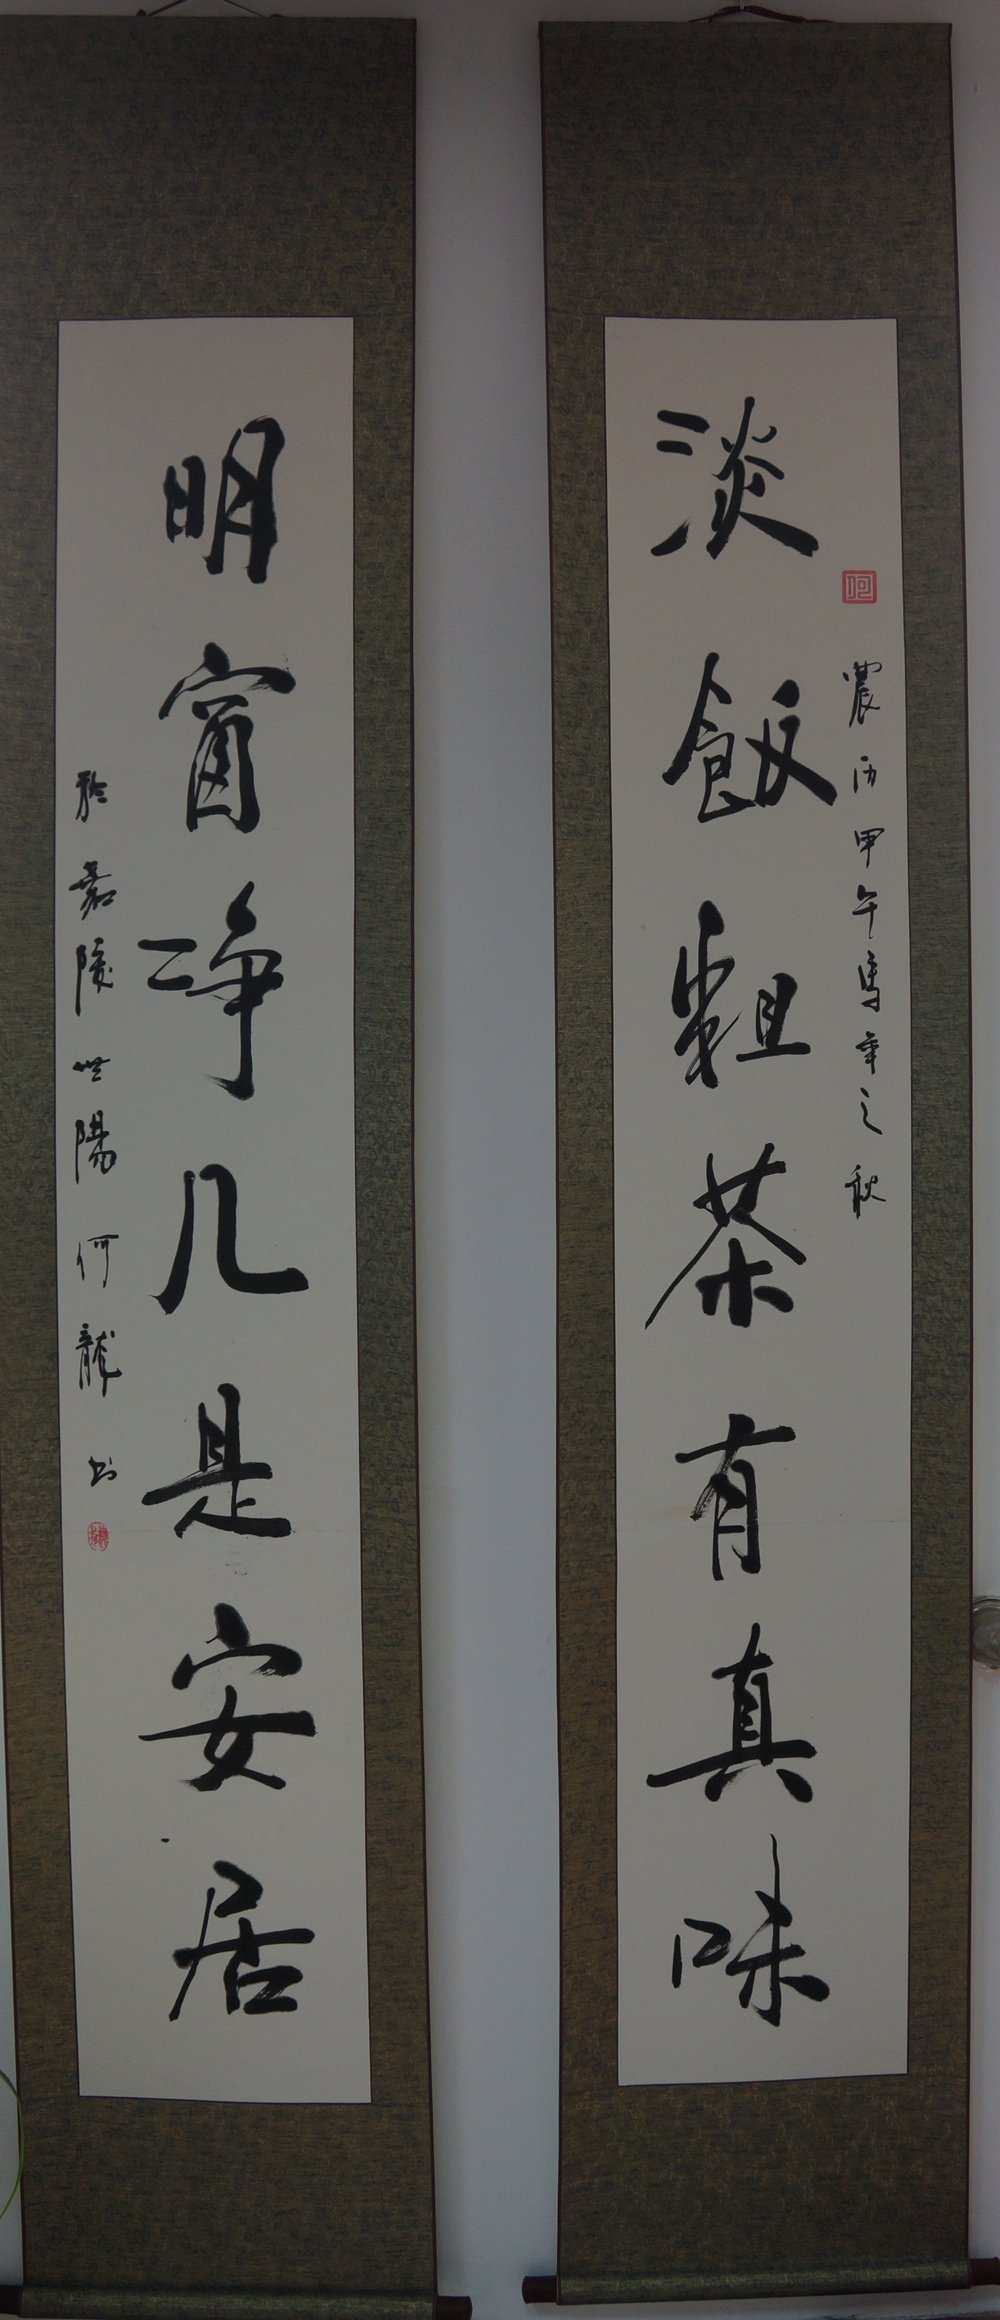 淡飯粗茶有真味
農历甲午馬年之秋
明窗净几是安居
於嘉陵世陽何龍书